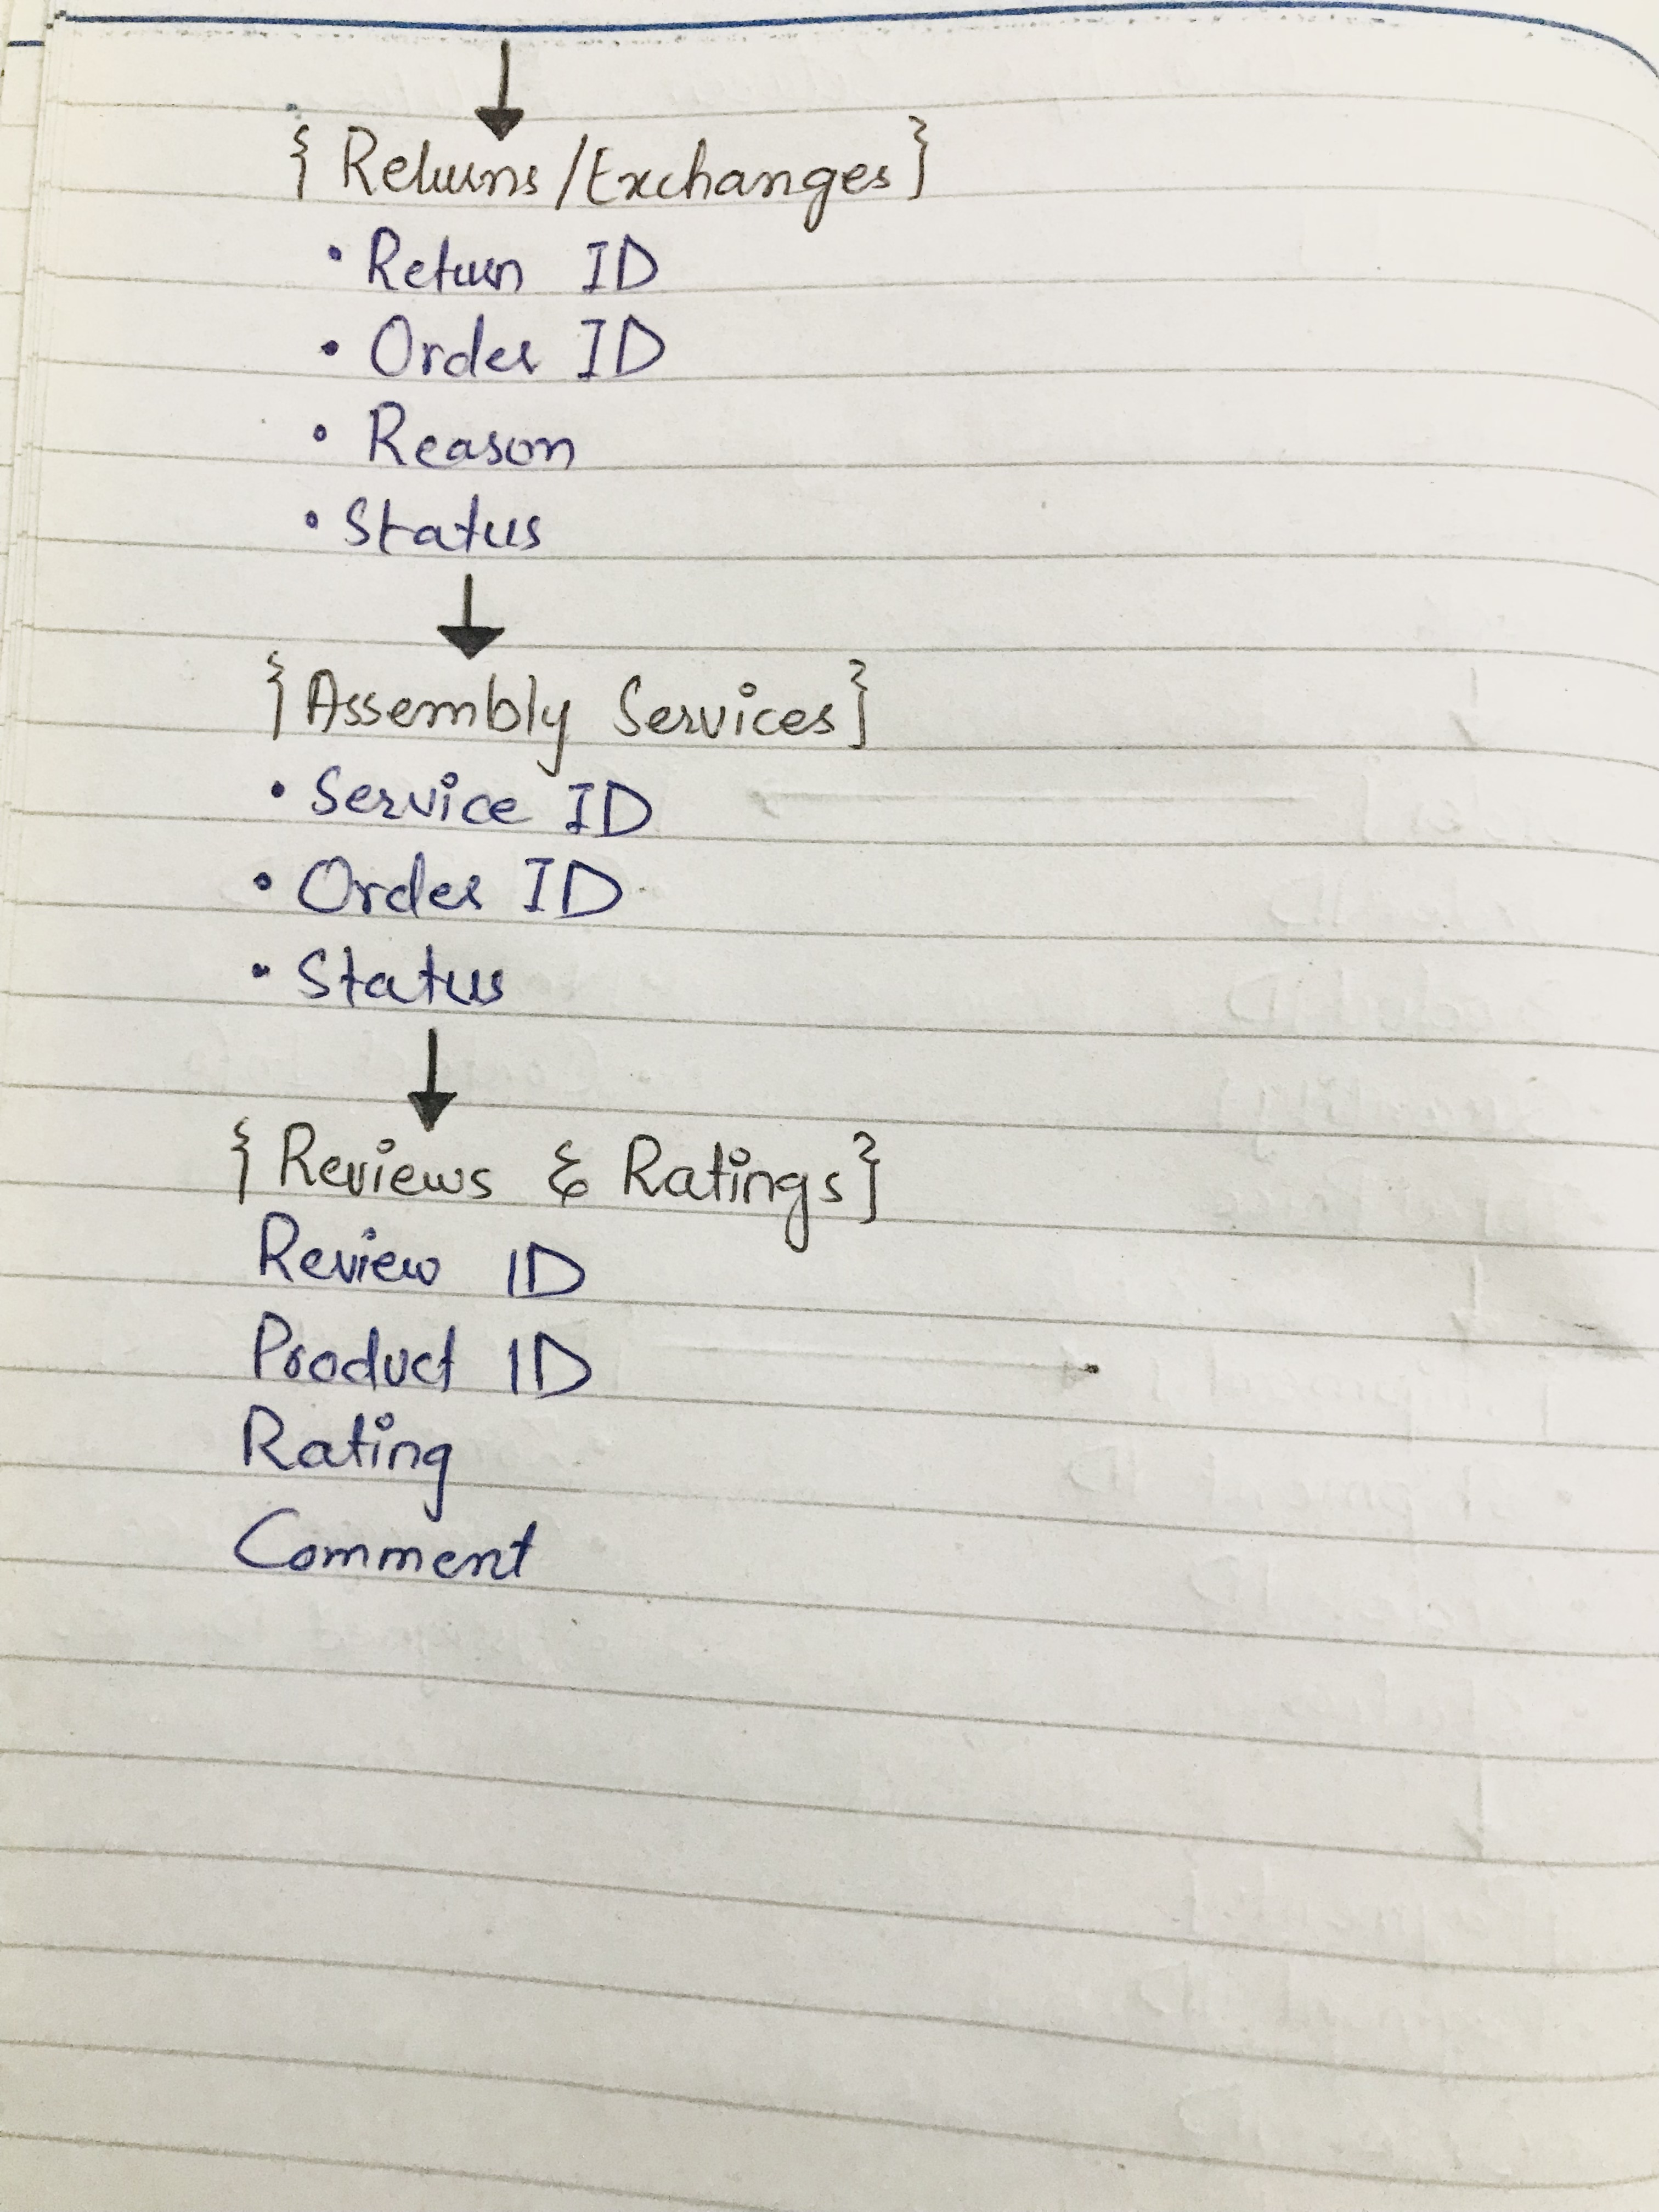 { Returns/Exchanges }
• Return ID
• Order ID
• Reason
• Status
{ Assembly Services }
• Service ID
• Order ID
• Status
{ Reviews & Ratings }
Review ID
Product ID
Rating
Comment